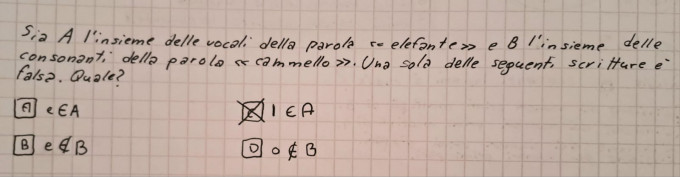 Sia A l'insieme delle vocali della parola «elefante» e B l'insieme delle
consonanti della parola «cammello». Una sola delle seguenti scritture è
falsa. Quale?
A e ∈ A
C l ∈ A
B e ∉ B
D o ∉ B